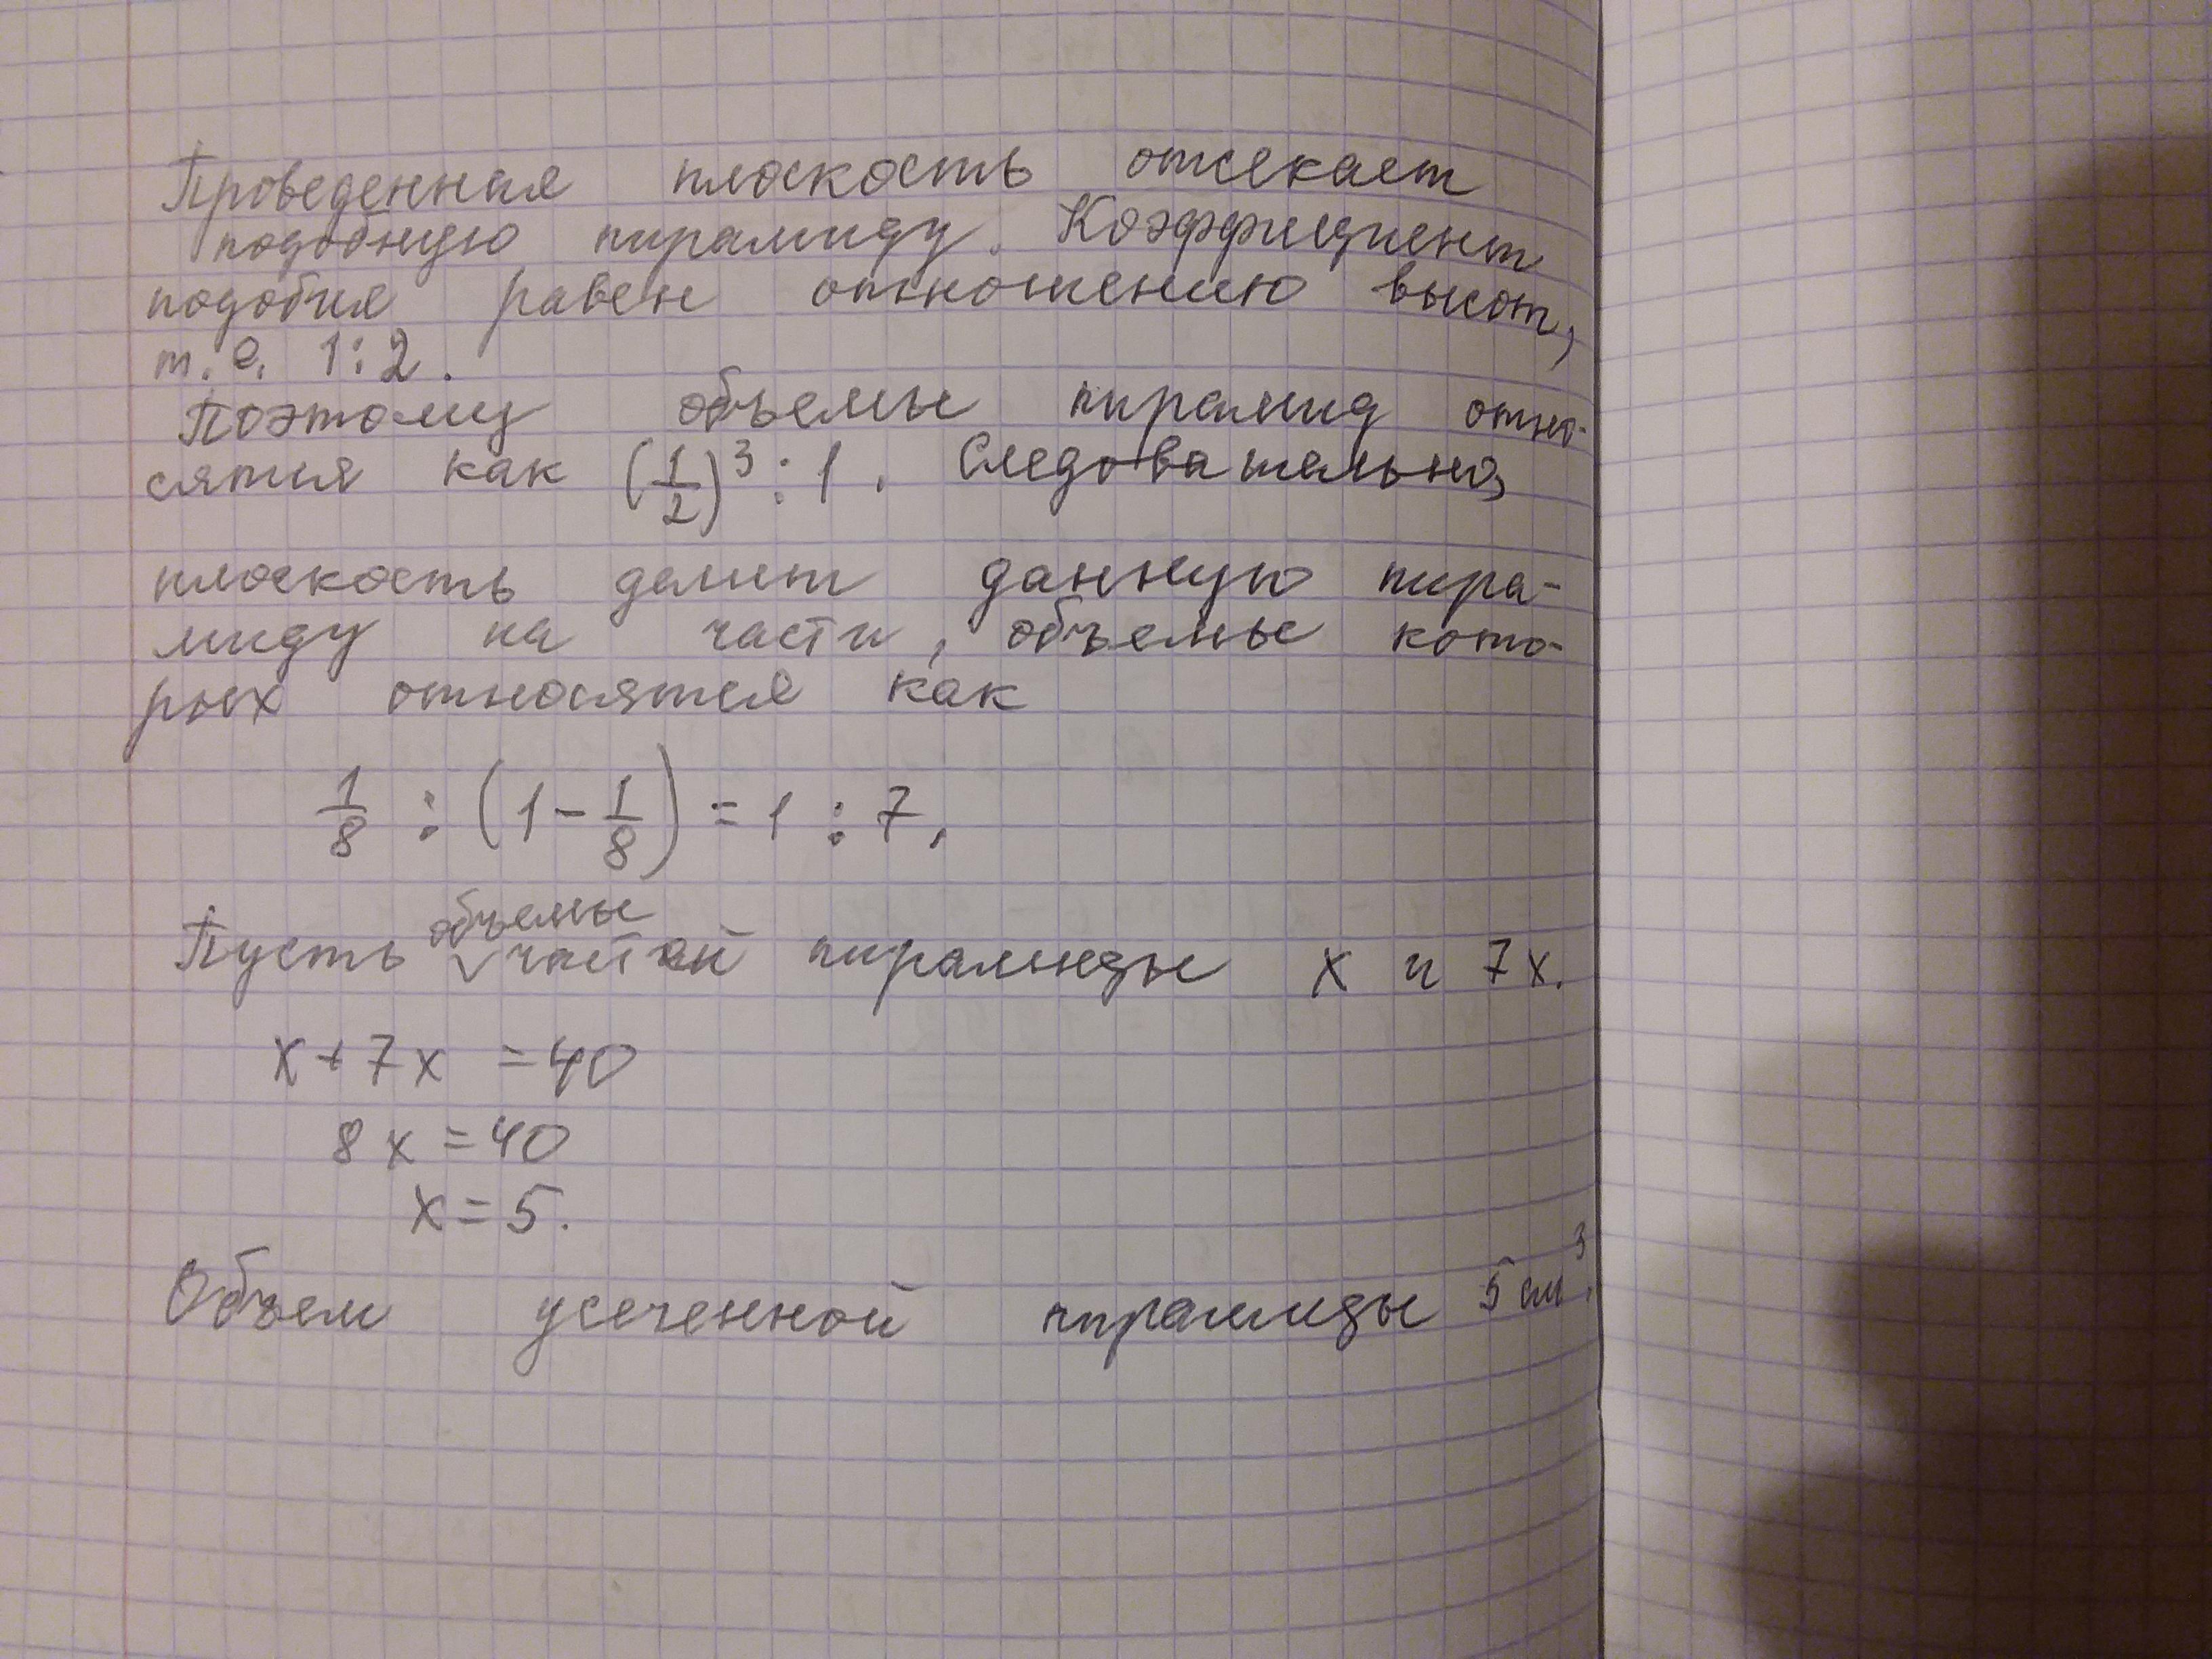 Проведенная плоскость отсекает
подобную пирамиду. Коэффициент
подобия равен отношению высот,
т.е. 1:2.
Поэтому объемы пирамид отно-
сятся как (1/2)³ : 1. Следовательно,
плоскость делит данную пира-
миду на части, объемы кото-
рых относятся как
1/8 : (1 - 1/8) = 1 : 7.
объемы
Пусть √ частей пирамиды x и 7x.
x + 7x = 40
8x = 40
x = 5.
Объем усеченной пирамиды 5 см³.